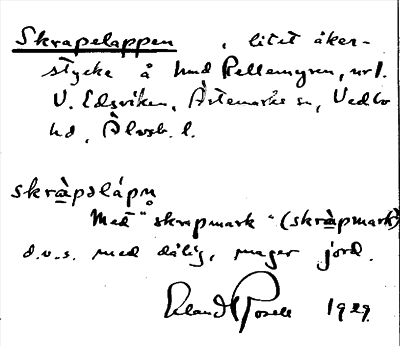 Skrapelappen, litet åker-
stycke å hmd Pellemyren, url.
V. Edsviken, Ärtemarks sn, Vedbo
hd, Älvsb. l.
skrà̱pəlápn̥
Med "skrapmark" (skrà̱pmark)
d.v.s. med dålig, mager jord.
Erland Rosell 1929.